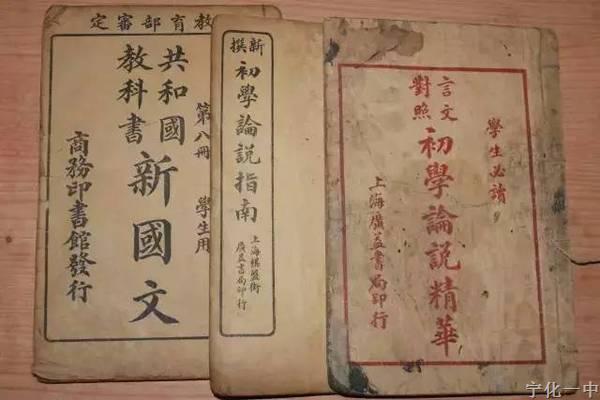 教育部審定
第八冊 學生用
共和國
教科書
新國文
商務印書館發行
新撰
初學論說指南
上海棋盤街
廣益書局印行
學生必讀
言文
對照
初學論說精華
上海廣益書局印行
宁化一中